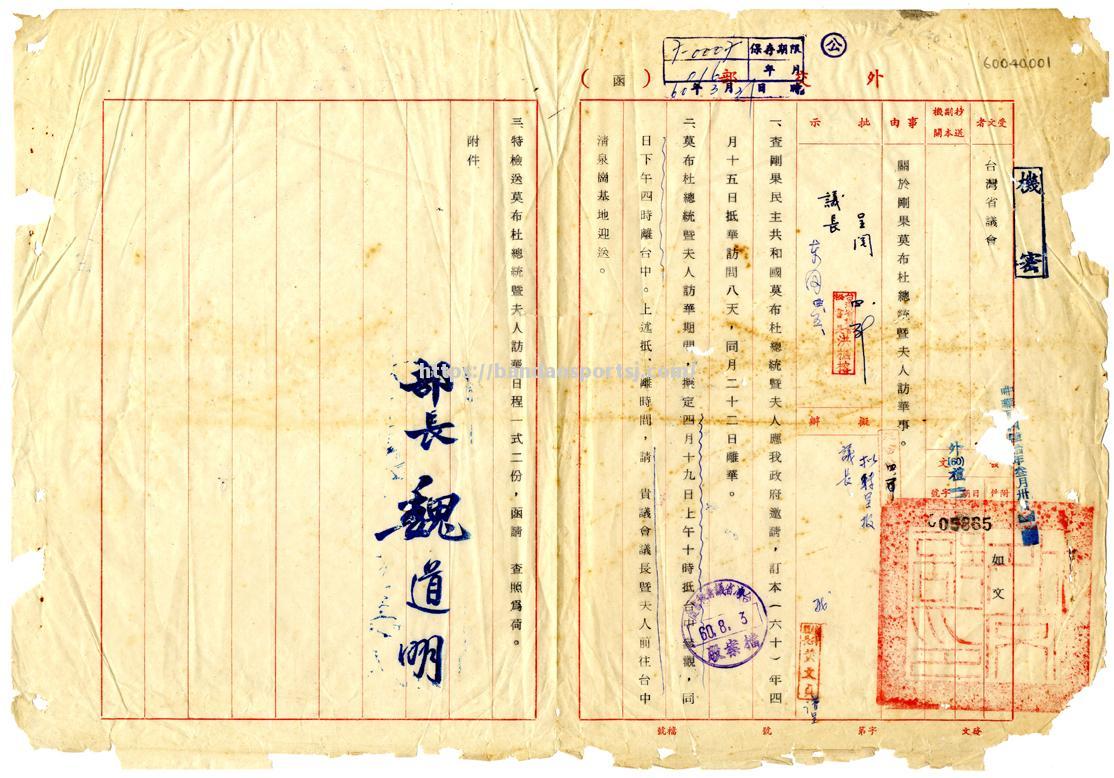 60040001
公
保存期限
年 月
外交部
(函)
60年3月2日
機密
受文者
台灣省議會
抄送副本機關
事由
關於剛果莫布杜總統暨夫人訪華事。
批示
呈閱
議長
擬辦
議長
發文
附件
日期
字號
外(60)禮一
05885
如文
一、查剛果民主共和國莫布杜總統暨夫人應我政府邀請,訂本(六十)年四
月十五日抵華訪問八天,同月二十二日離華。
二、莫布杜總統暨夫人訪華期間,擬定四月十九日上午十時抵台中參觀,同
日下午四時離台中。上述抵、離時間,請 貴議會議長暨夫人前往台中
清泉崗基地迎送。
三、特檢送莫布杜總統暨夫人訪華日程一式二份,函請 查照為荷。
附件
部長 魏道明
60. 8. 3
檔案股
https://bandaosportsj.com/
發文
字第
號
檔號